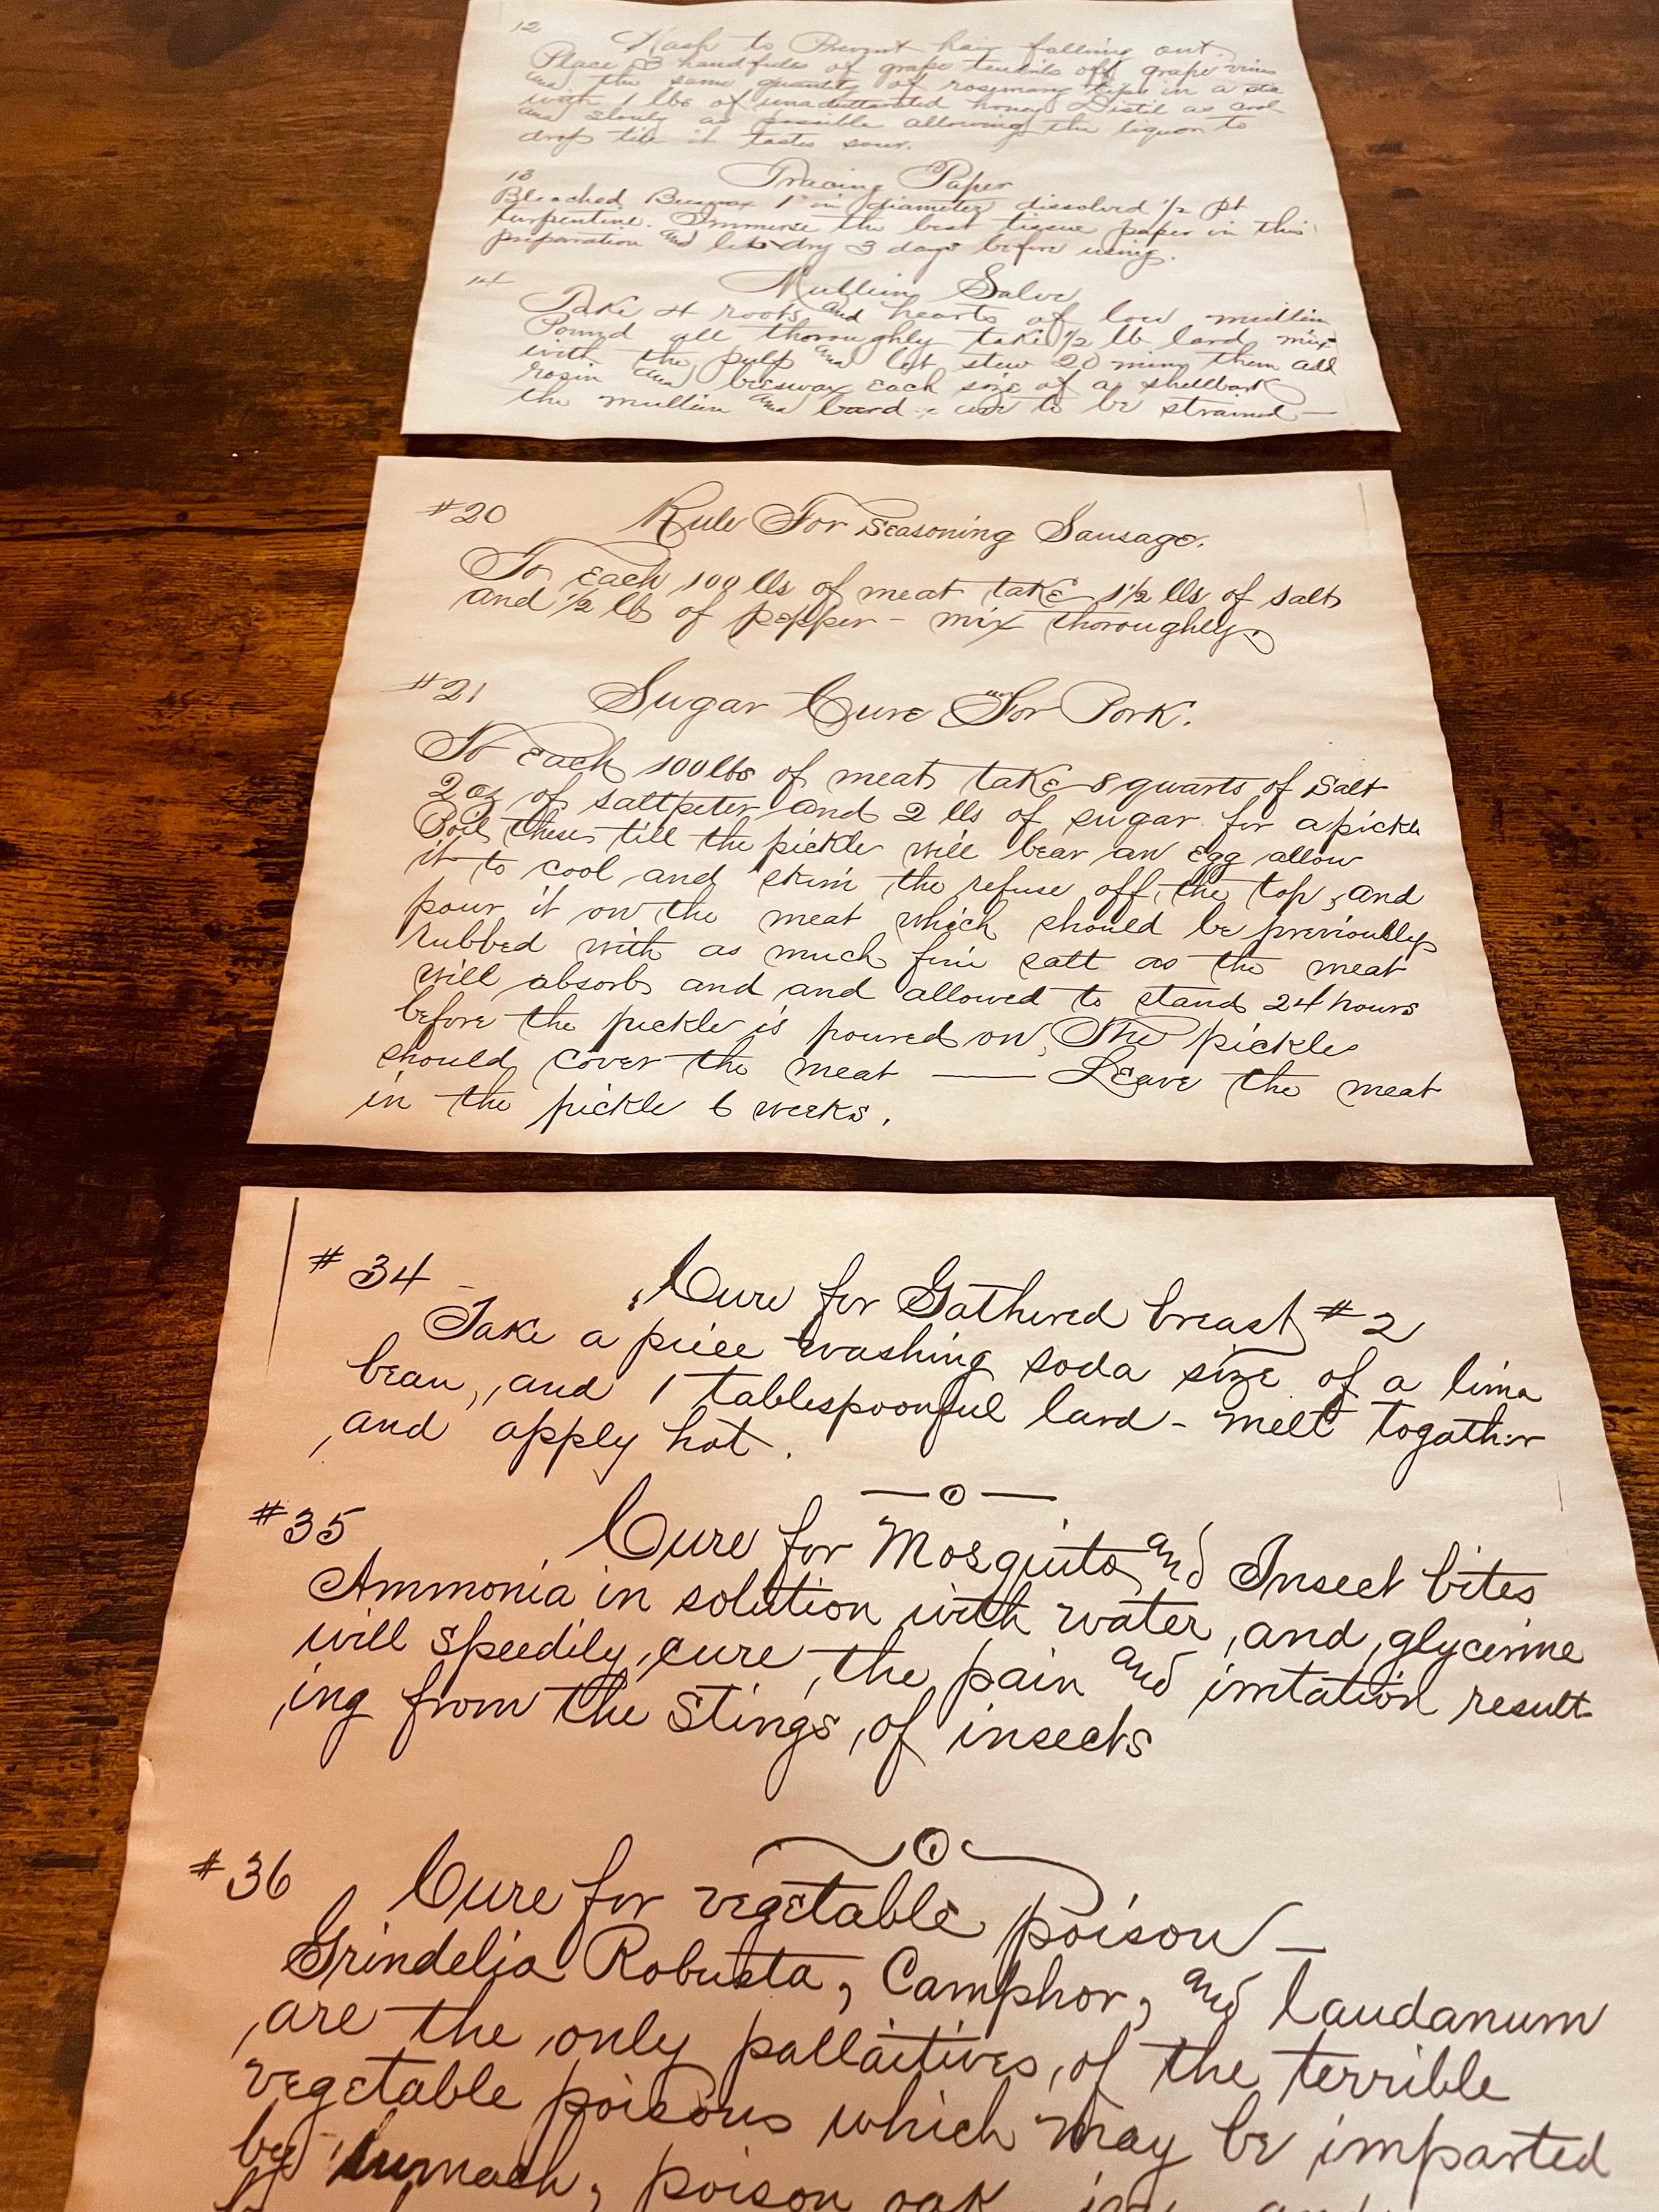 12
Wash to Prevent hair falling out.
Place 3 handfuls of grape tendrils off grape vines
and the same quantity of rosemary tips in a
with 1 lbs of unadulterated honey Distil as cool
and slowly as possible allowing the liquor to
drop till it tastes sour.
13
Tracing Paper
Bleached Beeswax 1 in diameter dissolved 1/2 pt
turpentine. Immerse the best tissue paper in this
preparation and let dry 3 days before using.
14
Mullin Salve
Take 4 roots and hearts of low mullin
Pound all thoroughly take 1/2 lb lard mix
with the pulp and let stew 20 mins then add
rosin and beeswax each size of a shellbark
the mullin and lard are to be strained —
#20
Rule For Seasoning Sausage.
To each 100 lbs of meat take 1 1/2 lbs of salt
and 1/2 lb of pepper - mix thoroughly.
#21
Sugar Cure "" For Pork.
To Each 100 lbs of meat take 8 quarts of Salt
2 oz of saltpeter and 2 lbs of sugar for a pickle
Boil these till the pickle will bear an Egg allow
it to cool and skim the refuse off the top, and
pour it on the meat which should be previously
rubbed with as much fine salt as the meat
will absorb and and allowed to stand 24 hours
before the pickle is poured on, The pickle
should cover the meat — Leave the meat
in the pickle 6 weeks.
#34 -
Cure for Gathered breast #2
Take a piece washing soda size of a lima
bean, and 1 tablespoonful lard - melt togather
and apply hot.
#35
Cure for Mosquito and Insect bites
Ammonia in solution with water, and, glycerine
will speedily, cure, the pain and irritation result-
ing from the Stings, of insects
#36
Cure for vegetable poison —
Grindelia Robusta, Camphor, and laudanum
are the only pallaitives, of the terrible
vegetable poisons which may be imparted
by sumach, poison oak, ivy, and